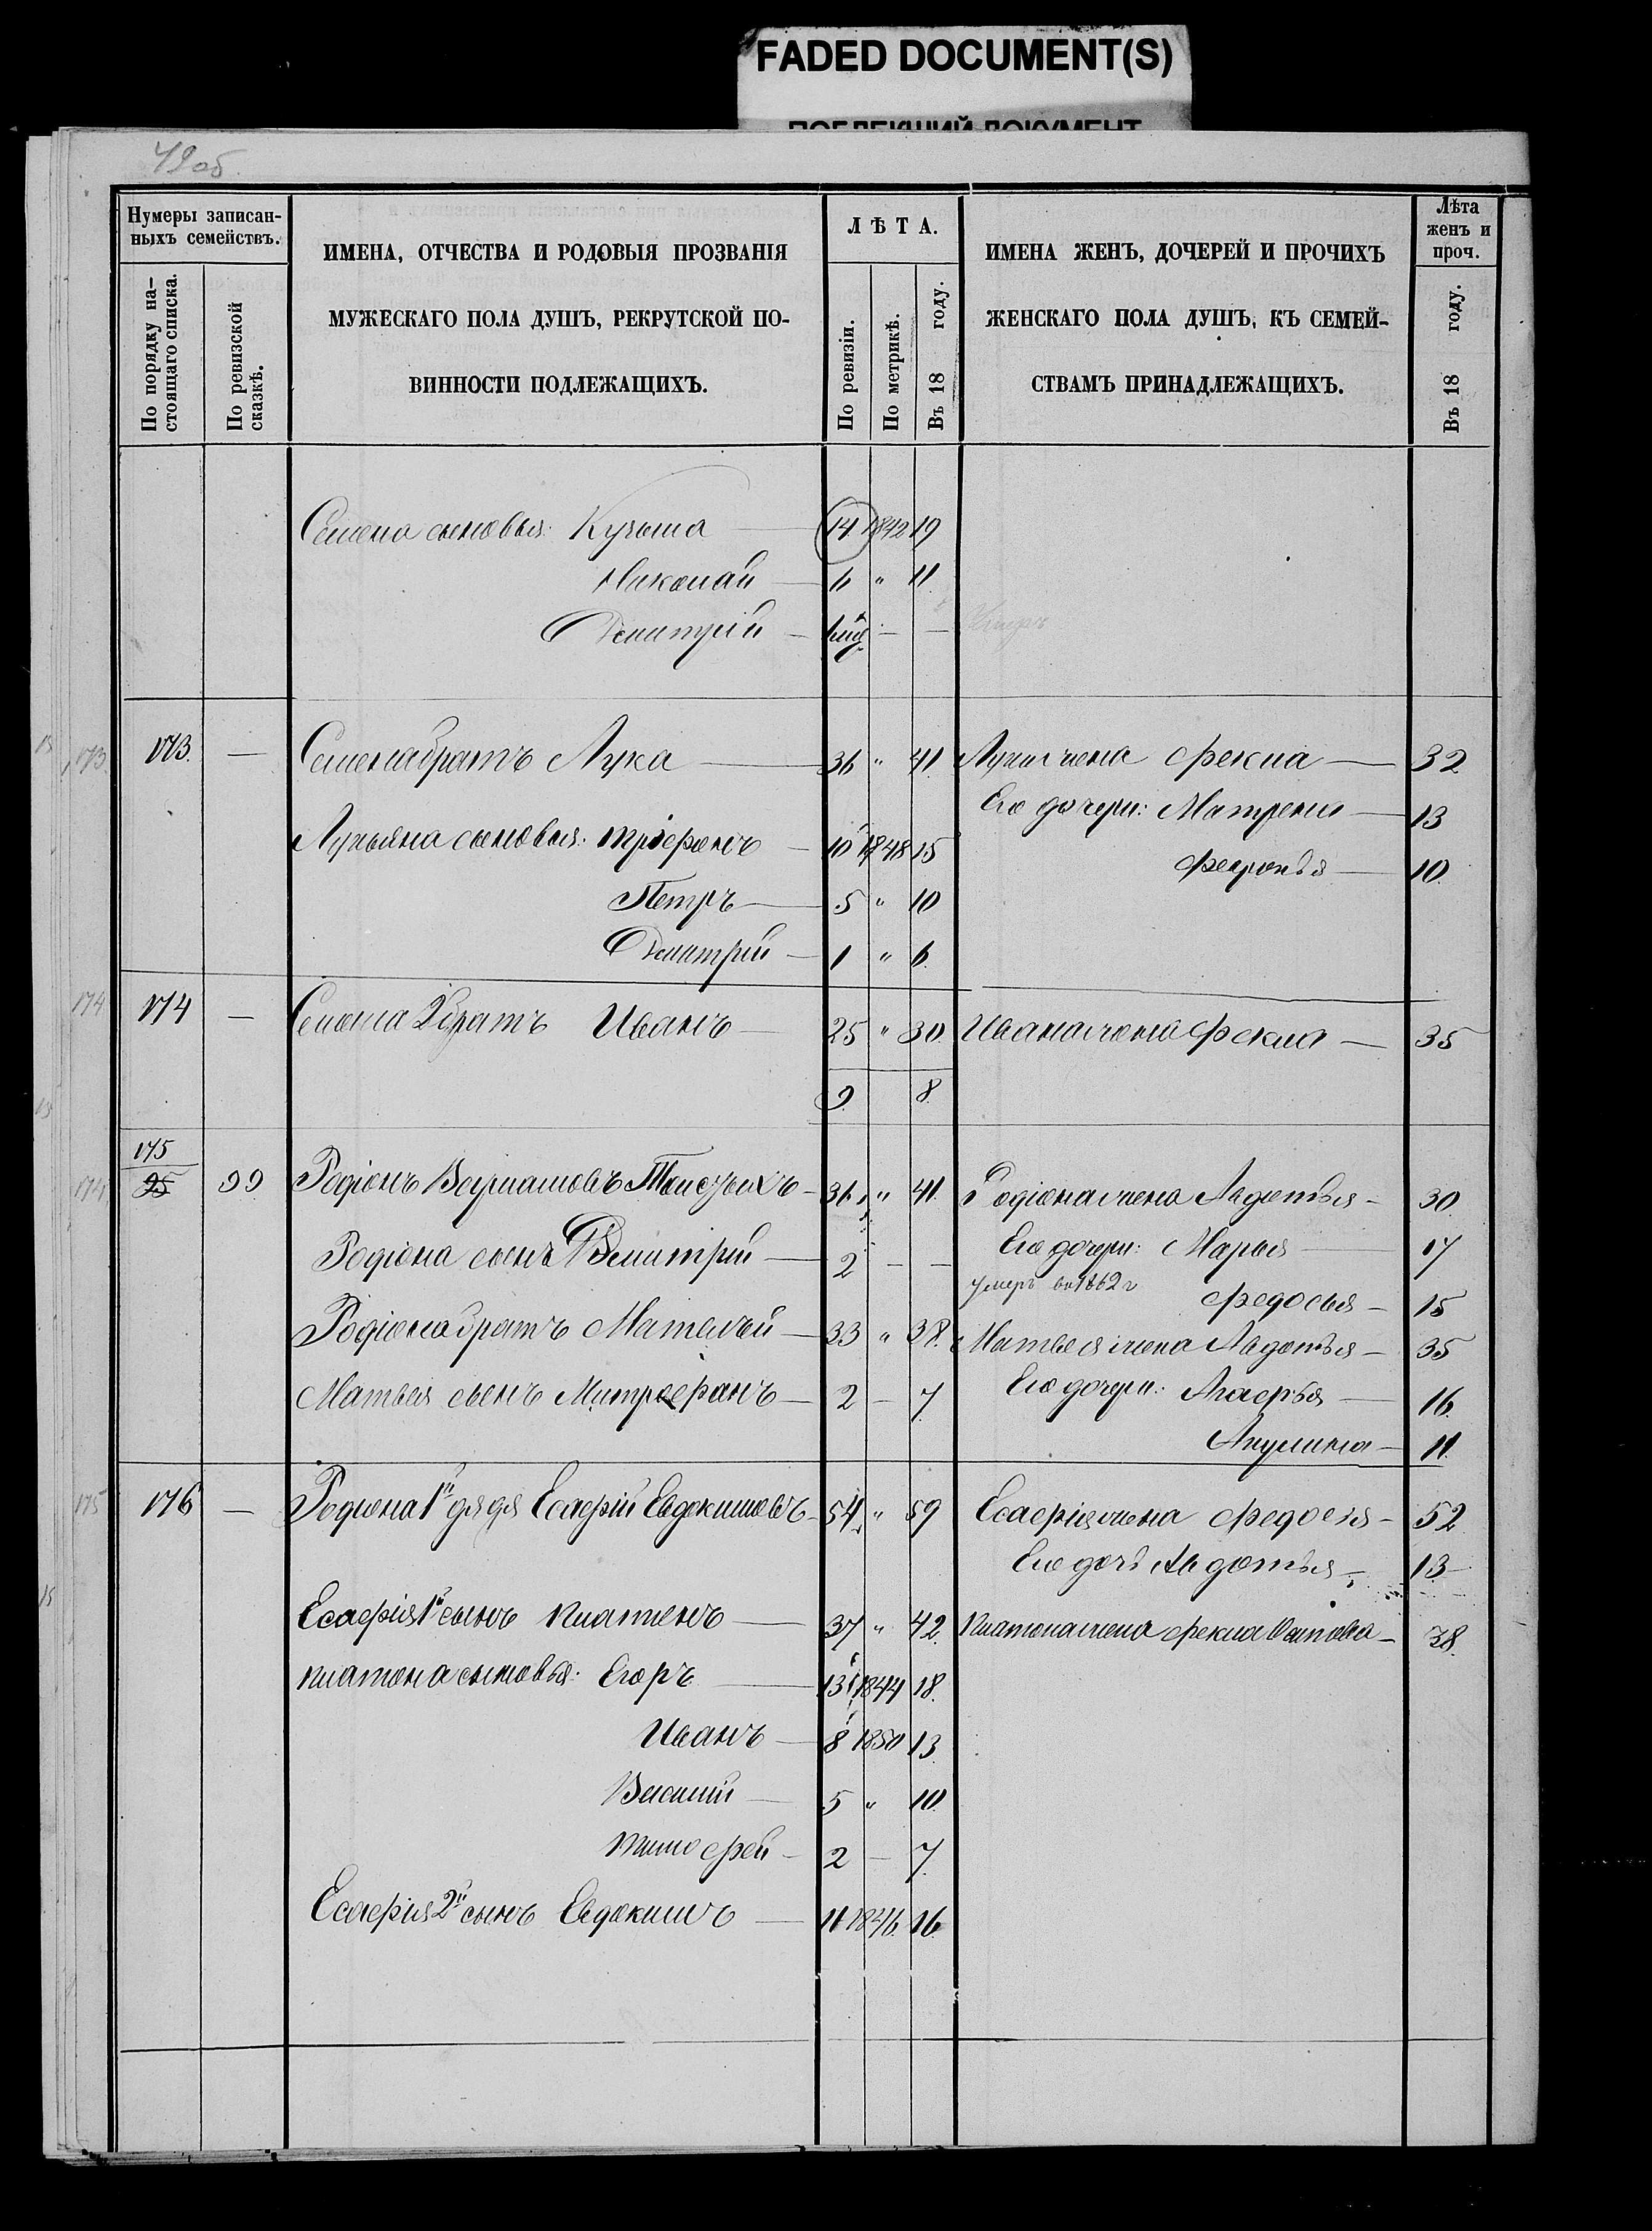 FADED DOCUMENT(S)
ПОБЛЕКШИЙ ДОКУМЕНТ
49 об.
Нумеры записан-
ныхъ семействъ.
По порядку на-
стоящаго списка.
По ревизской
сказкѣ.
ИМЕНА, ОТЧЕСТВА И РОДОВЫЯ ПРОЗВАНІЯ
МУЖЕСКАГО ПОЛА ДУШЪ, РЕКРУТСКОЙ ПО-
ВИННОСТИ ПОДЛЕЖАЩИХЪ.
ЛѢТА.
По ревизіи.
По метрикѣ.
Въ 18 году.
ИМЕНА ЖЕНЪ, ДОЧЕРЕЙ И ПРОЧИХЪ
ЖЕНСКАГО ПОЛА ДУШЪ, КЪ СЕМЕЙ-
СТВАМЪ ПРИНАДЛЕЖАЩИХЪ.
Лѣта
женъ и
проч.
Въ 18 году.
Семена сыновья: Кузьма — 14 1842 19
Николай — 6 " 11
Дмитрій — — —
173 173. — Семена братъ Лука — 36 " 41. Луки жена Фекла — 32
Его дочери: Матрена — 13
Лукьяна сыновья: Трифонъ — 10 1848 15
Февронья — 10.
Петръ — 5 " 10
Дмитрій — 1 " 6.
174 174 — Семена 2й братъ Иванъ — 25 " 30. Ивана жена Фекла — 35
9. 8.
175
174 95 99 Родіонъ 36 " 41. Родіона жена Авдотья — 30.
Родіона сынъ Дмитрій — 2 — — Его дочери: Марья 17
умеръ въ 1862 г Федосья — 15
Родіона братъ Матвѣй — 33 " 38. Матвея жена Авдотья — 35
Матвея сынъ Митрофанъ — 2 — 7 Его дочери: Агафья — 16.
Акулина — 11.
175 176 — Родіона 1й дядя Есафій Евдокимовъ — 54 " 59 Есафія жена Федосія — 52.
Его дочь Авдотья — 13
Есафія 1й сынъ Платонъ — 37 " 42. Платона жена Фекла Осипова — 38.
Платона сыновья: Егоръ — 13 1844 18.
Иванъ — 8 1850 13.
Василій — 5 " 10.
Тимофей — 2 — 7.
Есафія 2й сынъ Евдокимъ — 11 1846. 16.